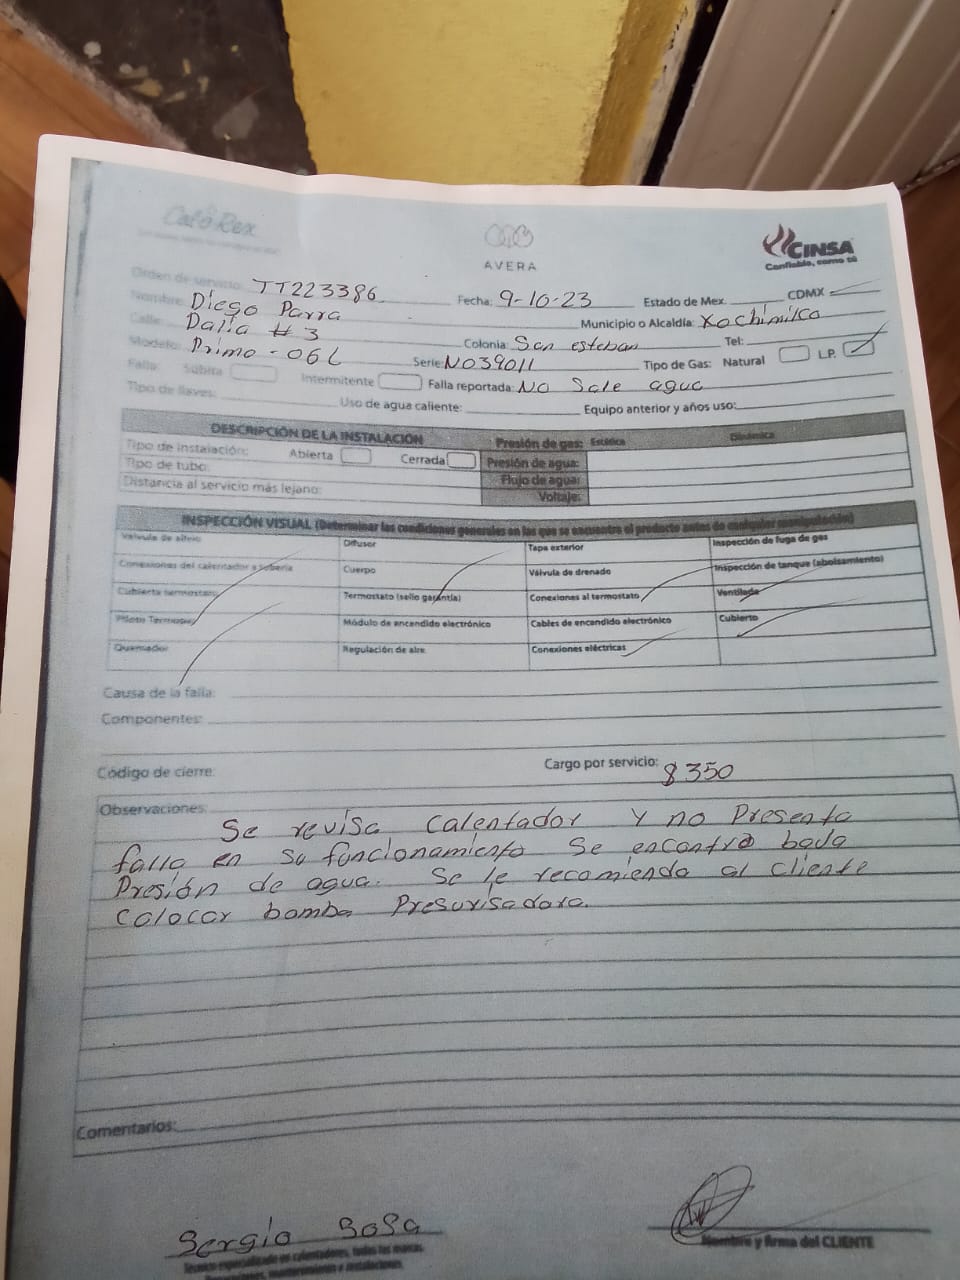 Cal-o-Rex
AVERA
CINSA
Confiable, como tú
Orden de servicio: TT223386 Fecha: 9-10-23 Estado de Mex. CDMX
Nombre: Diego Parra Municipio o Alcaldía: Xochimilco
Calle: Dalia # 3 Colonia: San esteban Tel:
Modelo: Primo-06L Serie: N039011 Tipo de Gas: Natural L.P.
Falla: Súbita Intermitente Falla reportada: No Sale agua
Tipo de llaves: Uso de agua caliente: Equipo anterior y años uso:
DESCRIPCIÓN DE LA INSTALACIÓN Presión de gas: Estática Dinámica
Tipo de instalación: Abierta Cerrada Presión de agua:
Tipo de tubo: Flujo de agua:
Distancia al servicio más lejano: Voltaje:
INSPECCIÓN VISUAL (Determinar las condiciones generales en las que se encuentra el producto antes de cualquier manipulación)
Válvula de alivio Difusor Tapa exterior Inspección de fuga de gas
Conexiones del calentador a tubería Cuerpo Válvula de drenado Inspección de tanque (abolsamiento)
Cubierta termostato Termostato (sello garantía) Conexiones al termostato Ventilada
Piloto Termopar Módulo de encendido electrónico Cables de encendido electrónico Cubierto
Quemador Regulación de aire Conexiones eléctricas
Causa de la falla:
Componentes:
Código de cierre: Cargo por servicio: $350
Observaciones:
Se revisa Calentador Y no Presenta
falla en su funcionamiento Se encontro baja
Presión de agua. Se le recomienda al Cliente
Colocar bomba Presurisadora.
Comentarios:
Sergio Sosa
Técnico especializado en calentadores, todas las marcas.
mantenimiento e instalaciones.
Nombre y firma del CLIENTE